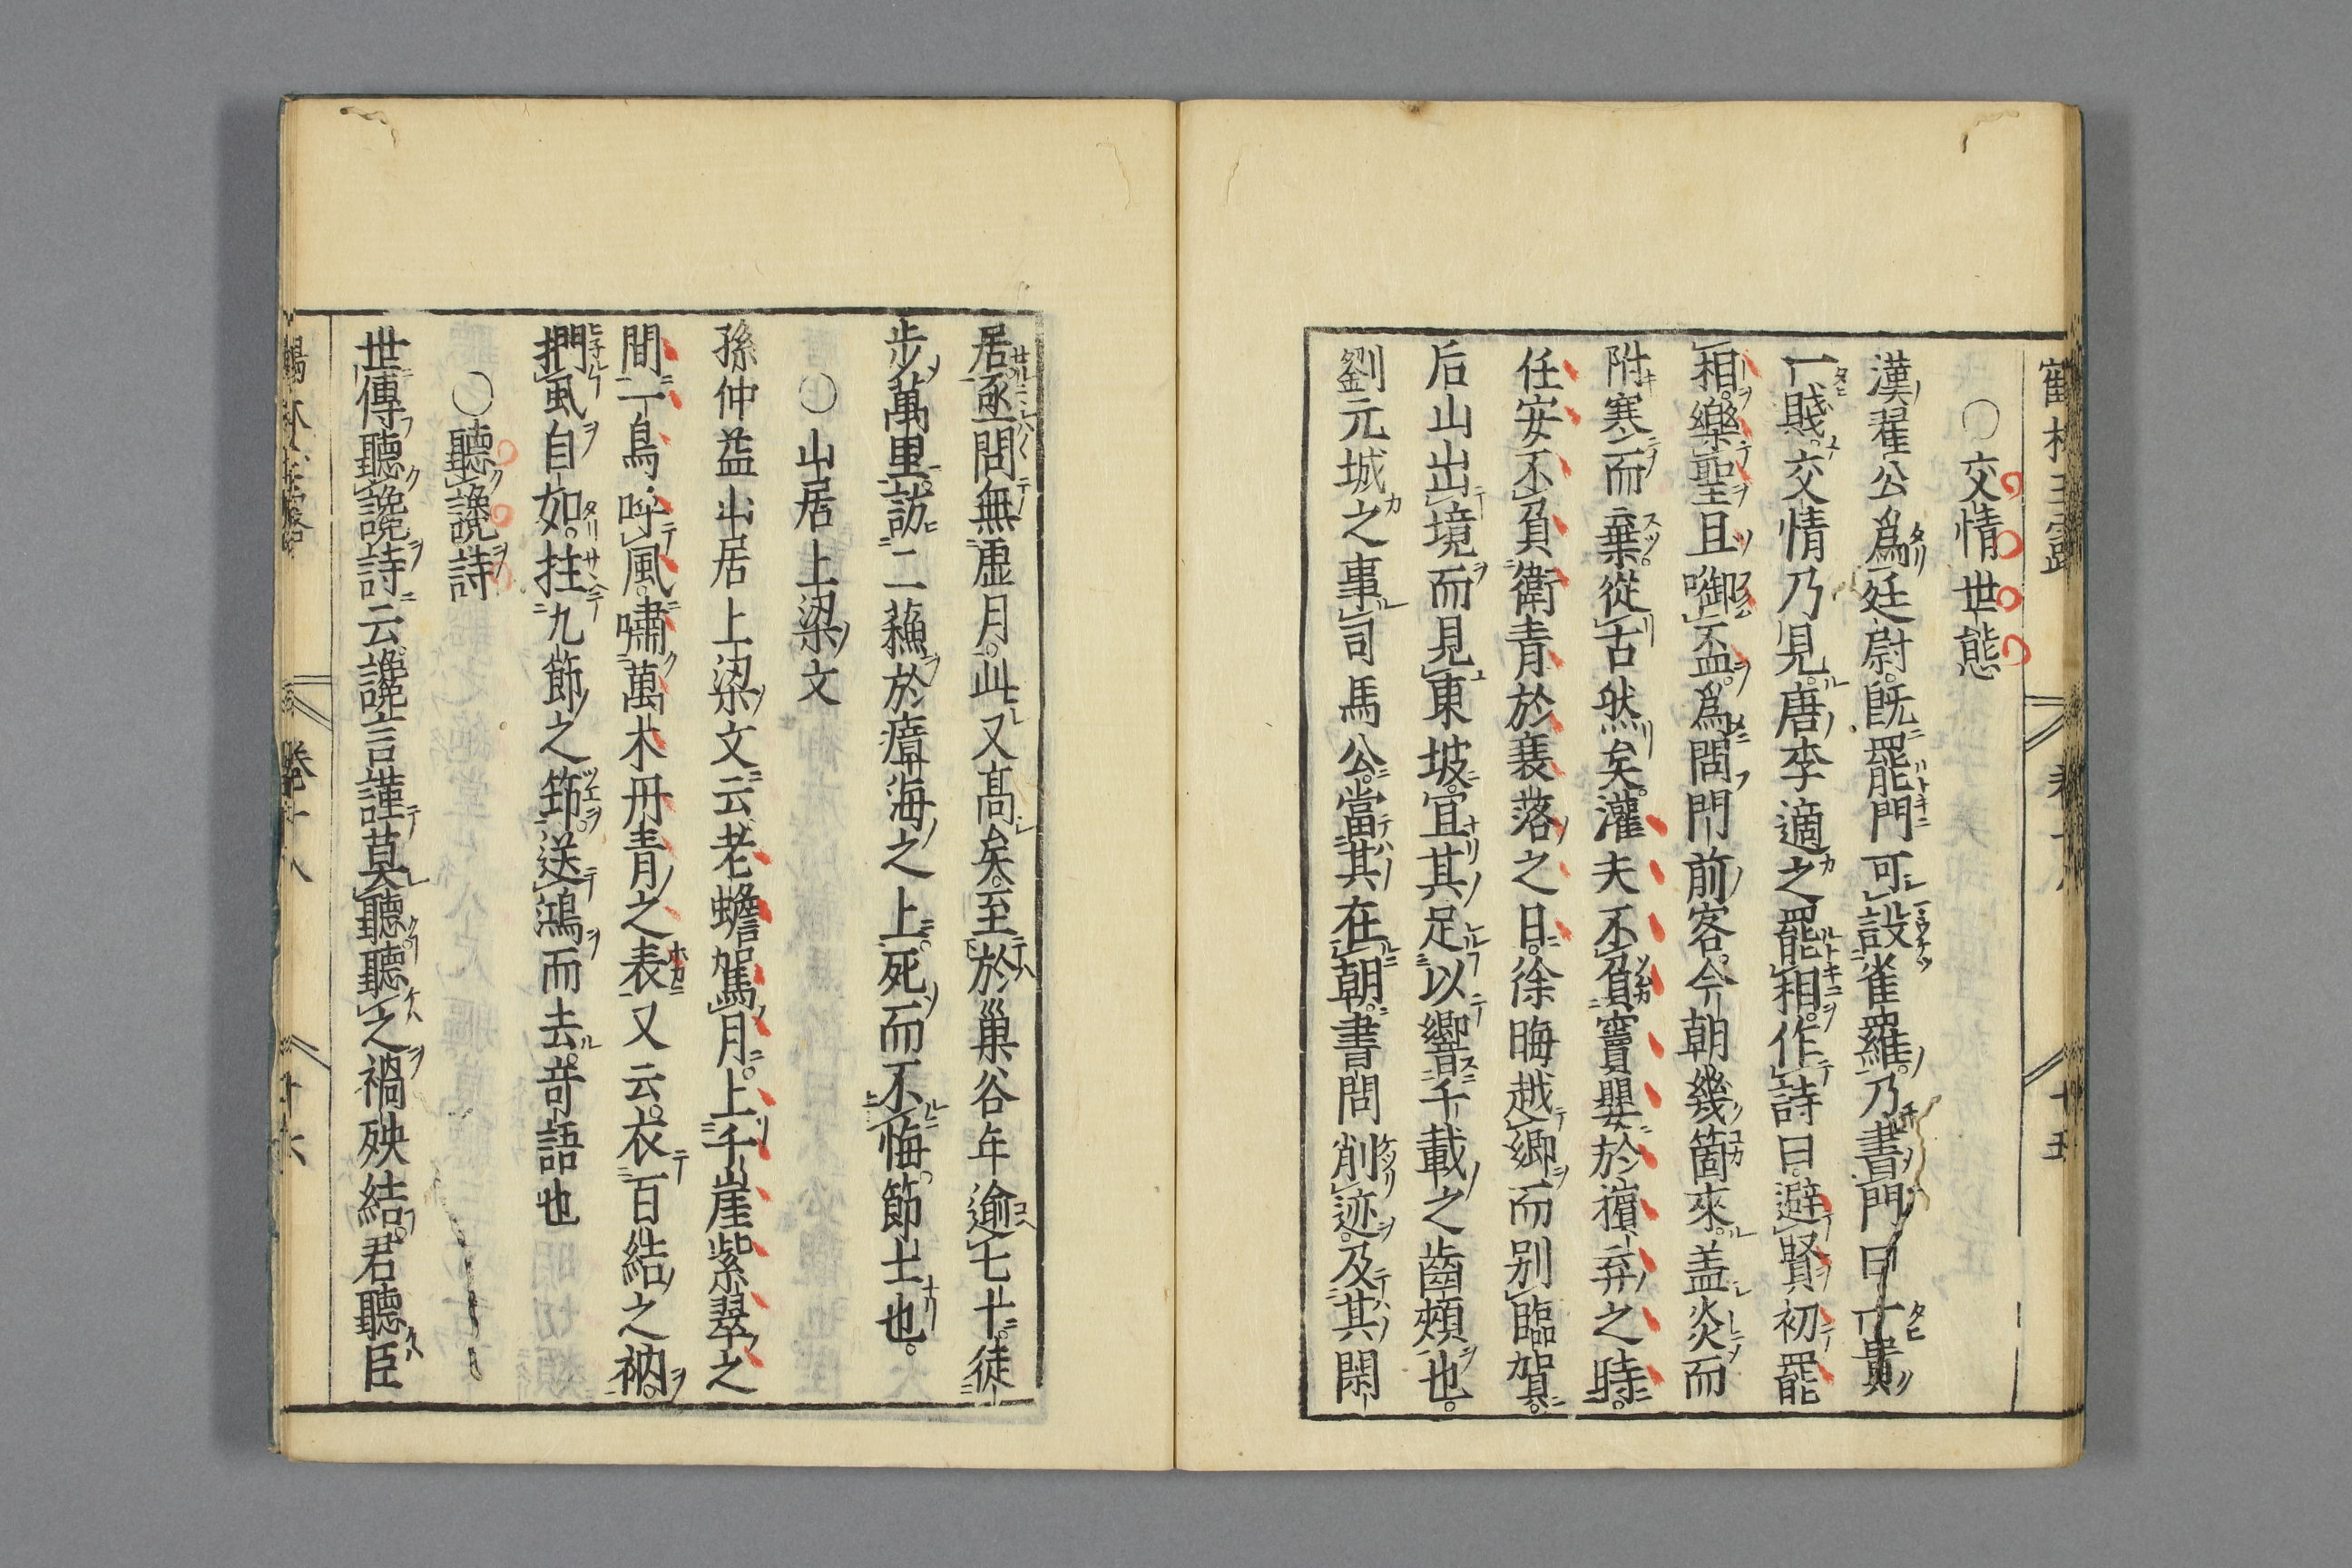 ○交情世態
漢翟公爲廷尉既罷門可設雀羅乃書門曰一貴
一賤交情乃見唐李適之罷相作詩曰避賢初罷
相樂聖且啣盃爲問門前客今朝幾箇來盖炎而
附寒而棄從古然矣灌夫不負竇嬰於擯弃之時
任安不負衛青於衰落之日徐晦越鄉而别臨賀
后山出境而見東坡宜其足以響千載之齒頰也
劉元城之事司馬公當其在朝書問削迹及其閑
居亟問無虚月此又高矣至於巢谷年逾七十徒
步萬里訪二蘓於瘴海之上死而不悔節士也
○山居上梁文
孫仲益山居上梁文云老蟾駕月上千崖紫翠之
間一鳥呼風嘯萬木丹青之表又云衣百結之衲
捫虱自如拄九節之筇送鴻而去奇語也
○聽讒詩
世傳聽讒詩云讒言謹莫聽聽之禍殃結君聽臣